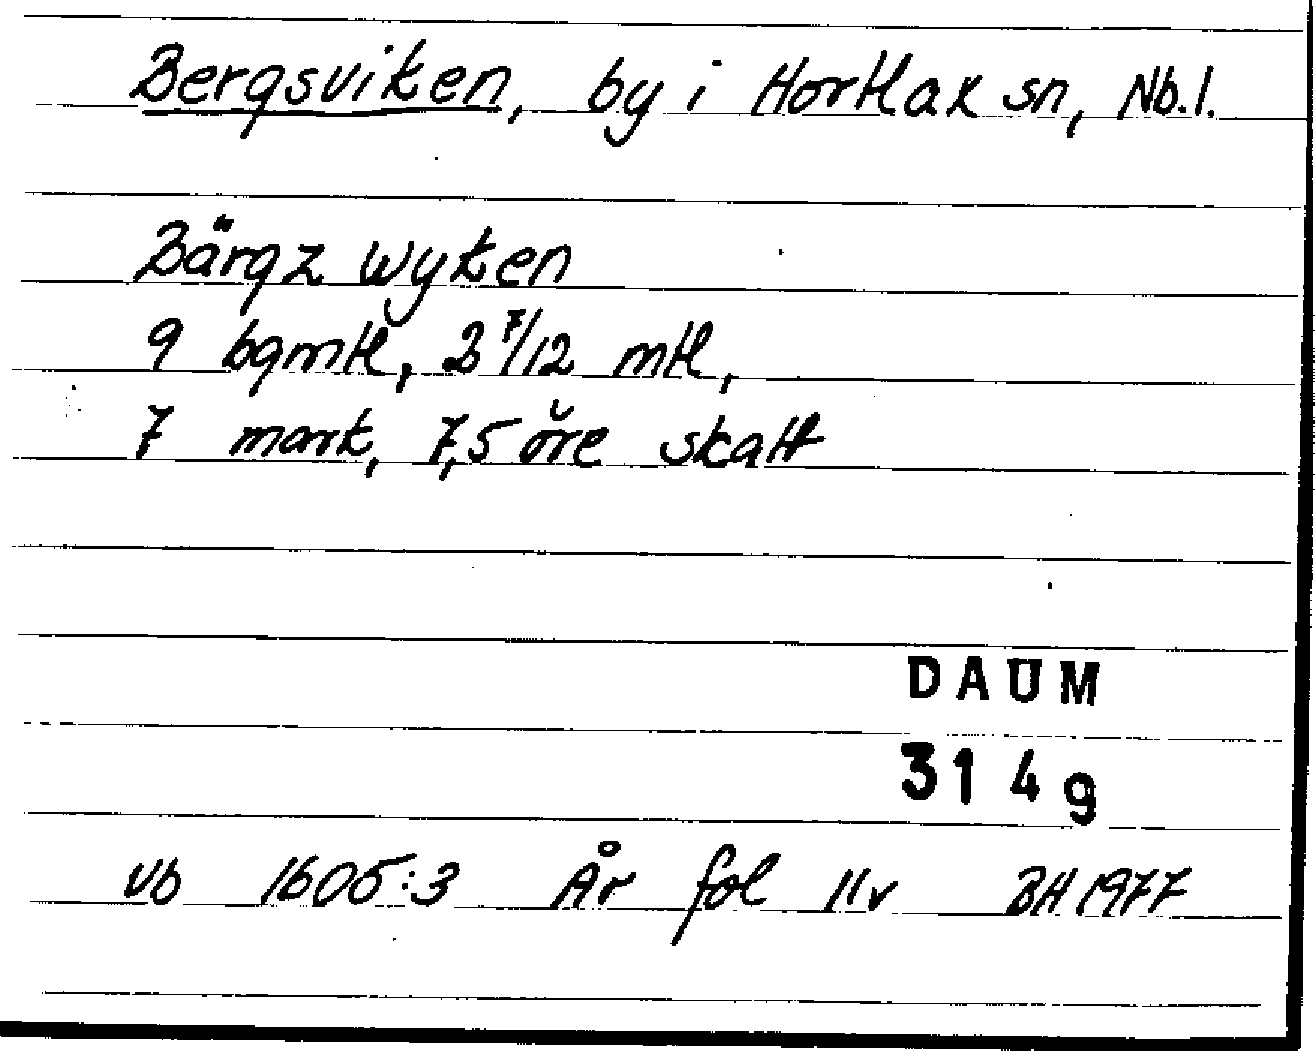 Bergsviken, by i Hortlax sn, Nb.l.
Bärgz wyken
9 bgmtl, 2 7/12 mtl,
7 mark, 7,5 öre skatt
DAUM
3149
Vb 1605:3 År fol 11v BH 1977